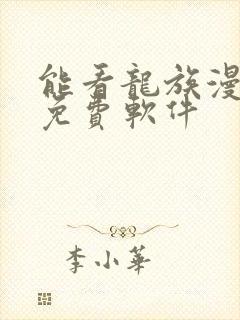 能看龍族漫
免費軟件
李小華